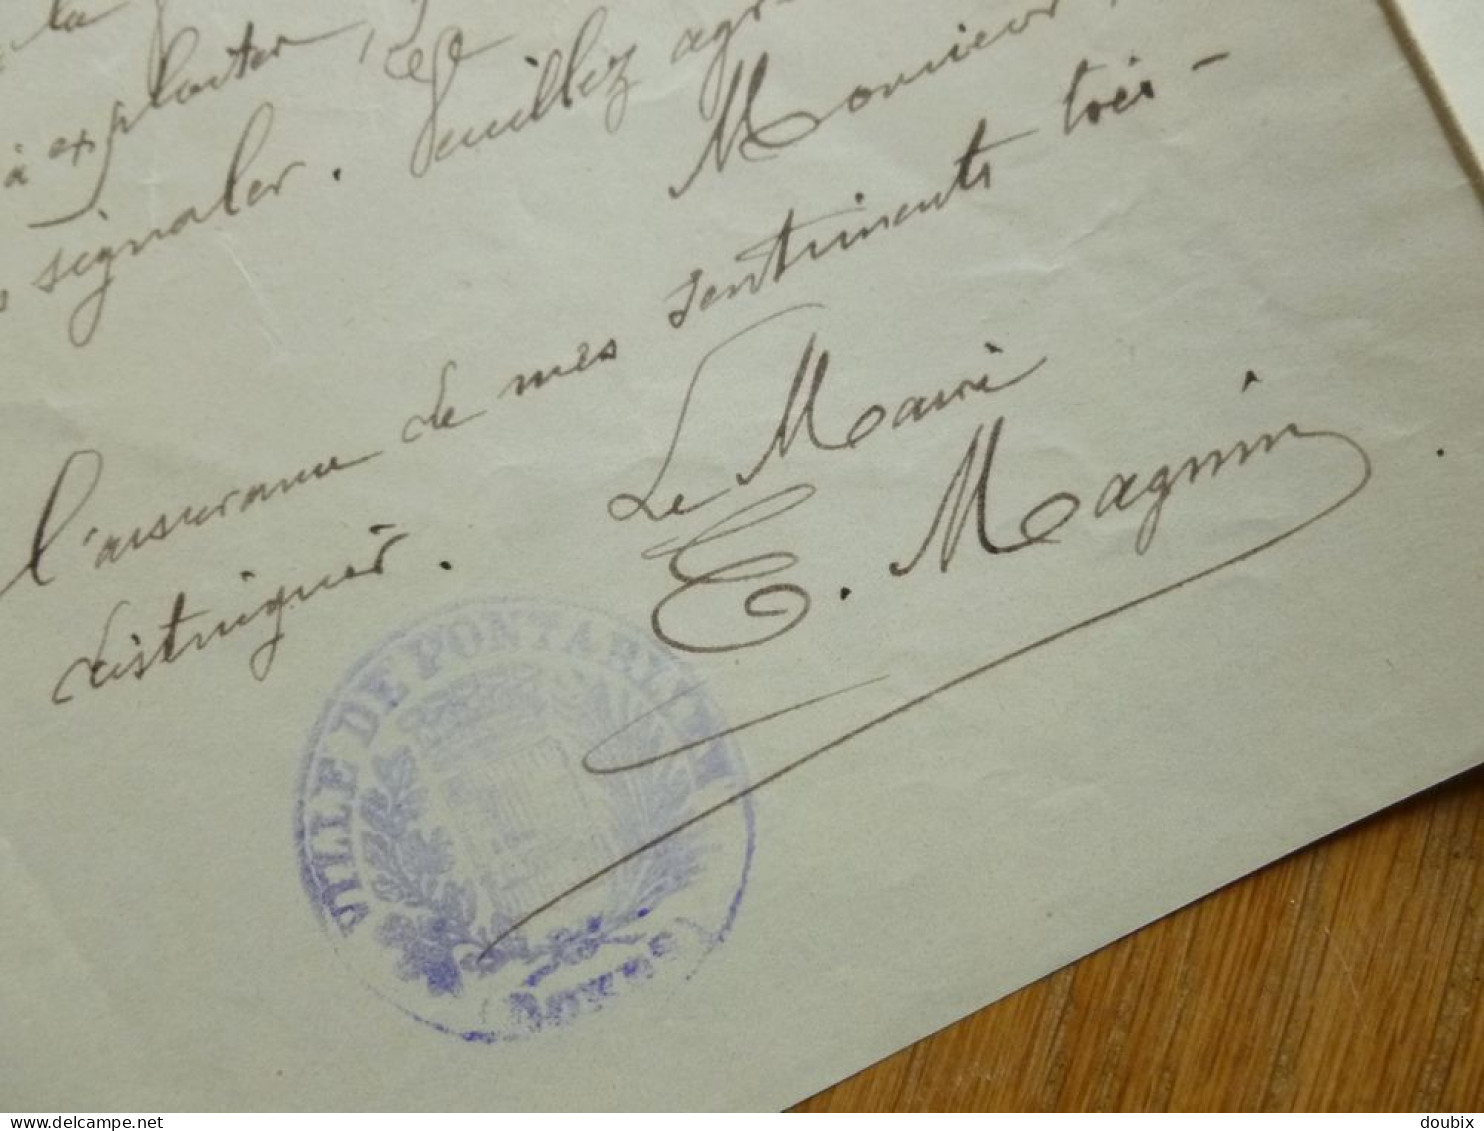 la
à exploiter,
signaler. Veuillez agr
Monsieur,
l'assurance de mes sentiments très-
distingués.
Le Maire
E. Magnin.
VILLE DE PONTARLIER
(DOUBS)
delcampe.net
doubix